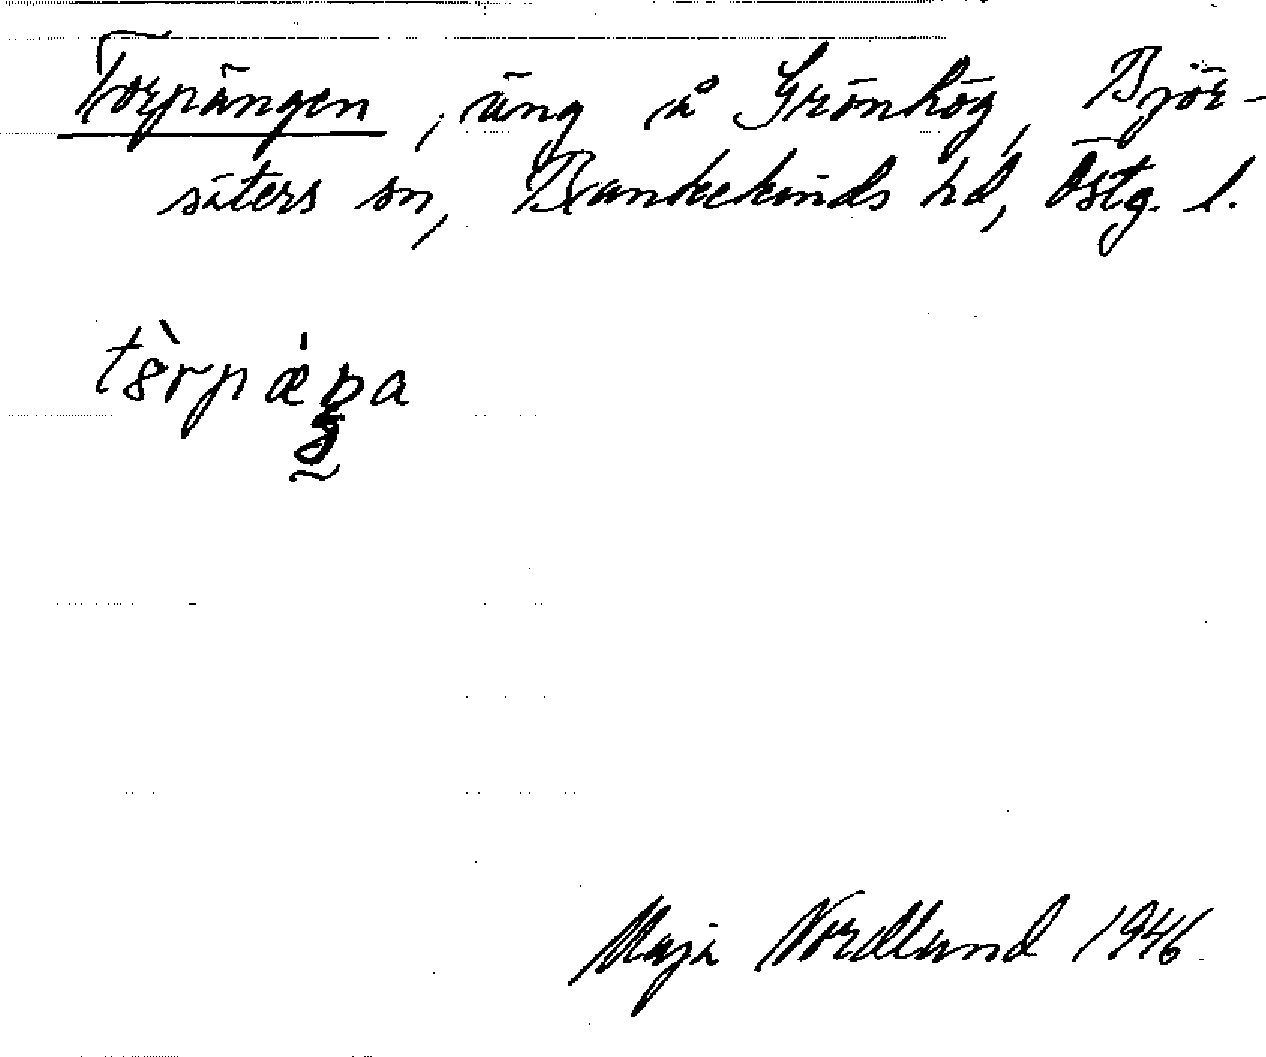 Torpängen, äng å Grönhög, Björ-
säters sn, Bankekinds hd, Östg. l.
Maja Nordlund 1946.